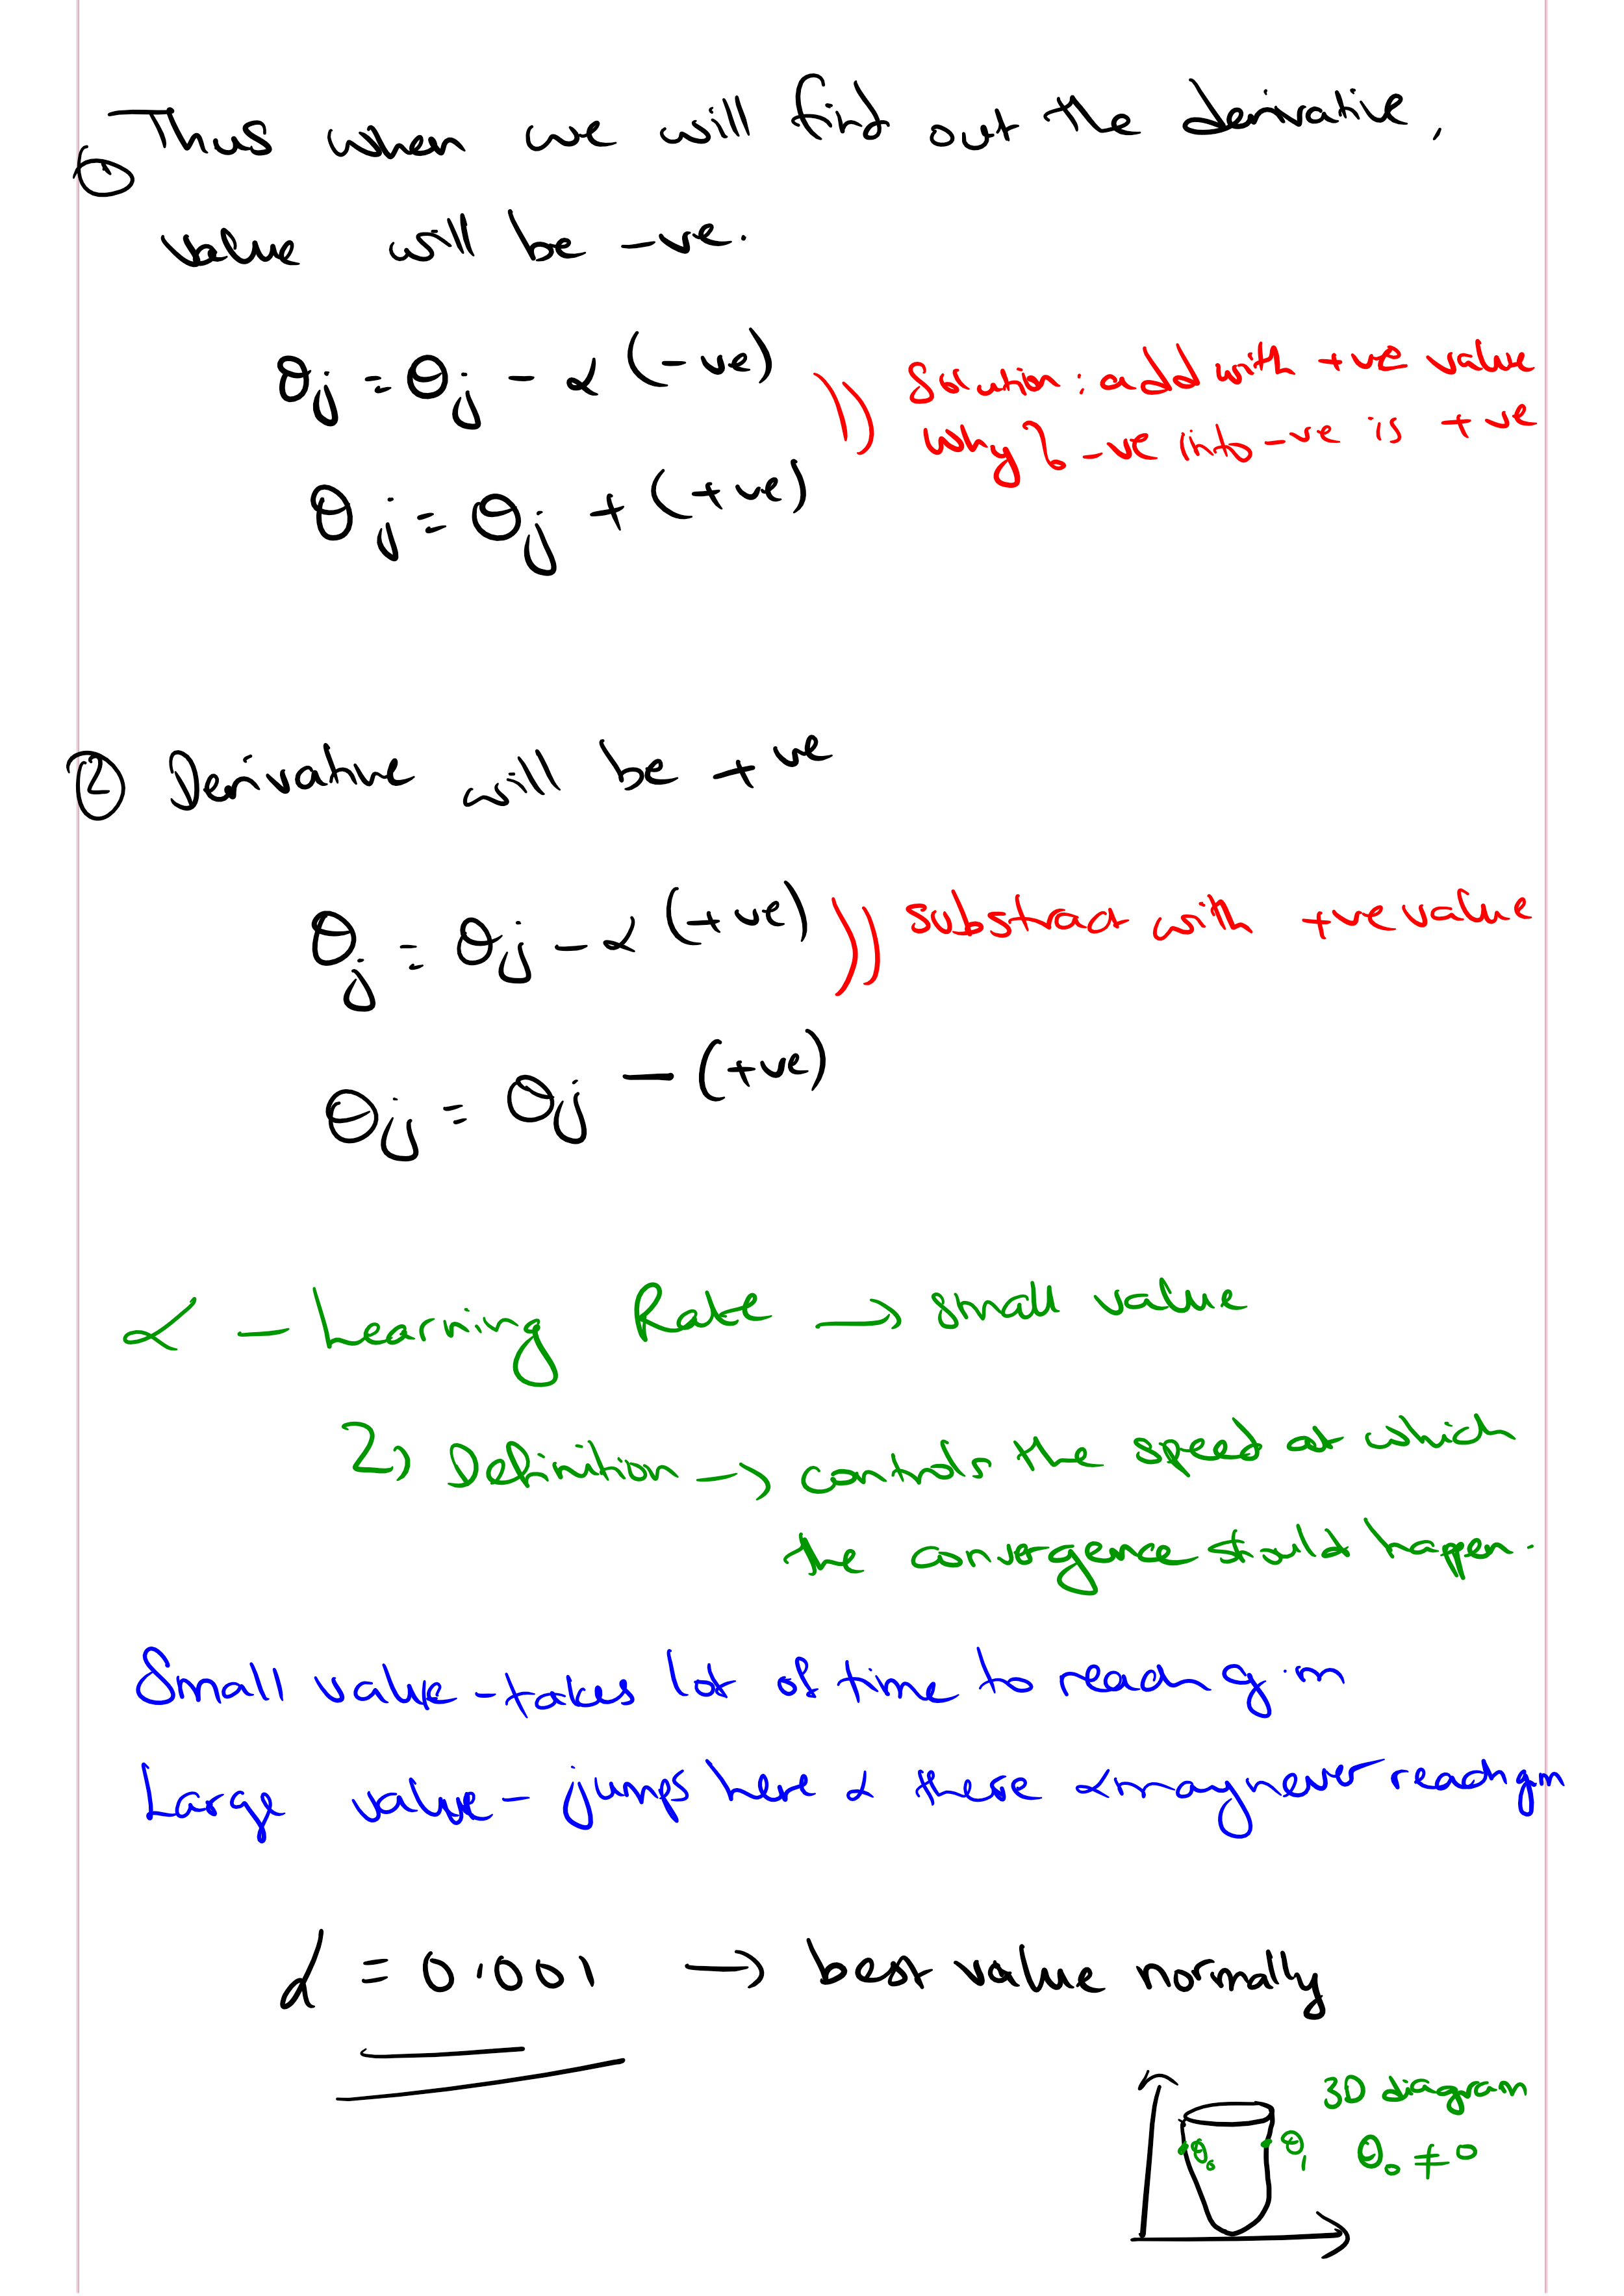 ① Thus when we will find out the derivative,
value will be -ve.
θj = θj - α (-ve)
Solution: add with +ve value
Why? -ve into -ve is +ve
θj = θj + (+ve)
② Derivative will be +ve
θj = θj - α (+ve)
substract with +ve value
θj = θj - (+ve)
α - Learning Rate → small value
2) Definition → controls the speed at which
the convergence should happen.
Small value - takes lot of time to reach g.m
Large value - jumps here & there & may never reach gm
α = 0.001 → best value normally
3D diagram
θ₀ θ₁ θ₀ ≠ 0